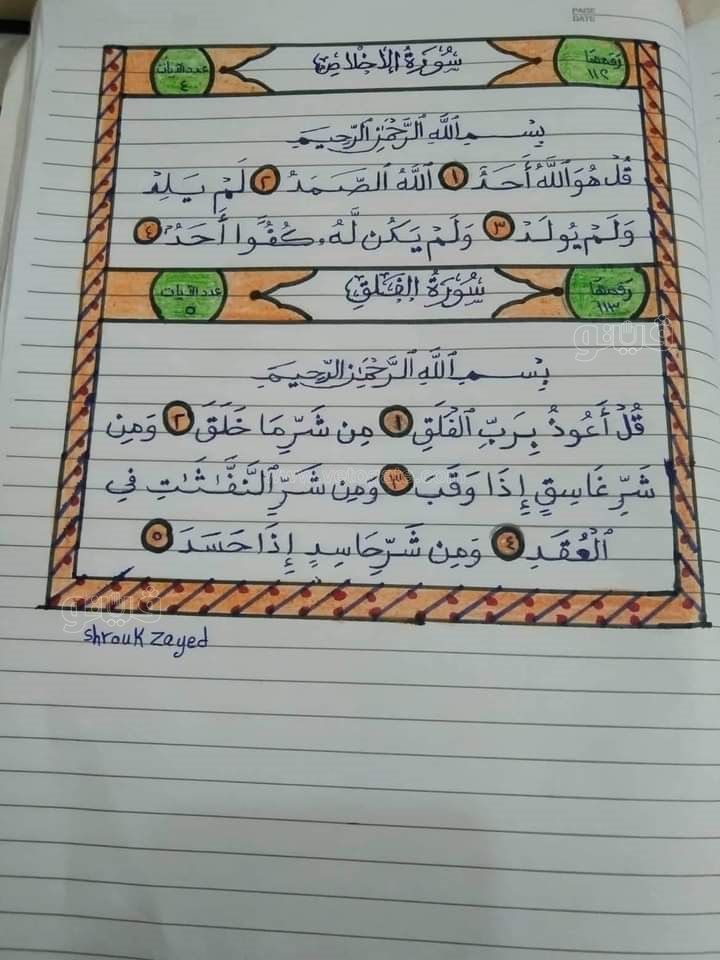 PAGE
DATE
رقمها ١١٢ سُورَةُ الإِخْلَاصِ عدد الآيات ٤
بِسْمِ اللَّهِ الرَّحْمَٰنِ الرَّحِيمِ
قُلْ هُوَ اللَّهُ أَحَدٌ ١ اللَّهُ الصَّمَدُ ٢ لَمْ يَلِدْ
وَلَمْ يُولَدْ ٣ وَلَمْ يَكُن لَّهُۥ كُفُوًا أَحَدٌۢ ٤
رقمها ١١٣ سُورَةُ الفَلَقِ عدد الآيات ٥
بِسْمِ اللَّهِ الرَّحْمَٰنِ الرَّحِيمِ
قُلْ أَعُوذُ بِرَبِّ الْفَلَقِ ١ مِن شَرِّ مَا خَلَقَ ٢ وَمِن
فيتو
شَرِّ غَاسِقٍ إِذَا وَقَبَ ٣ وَمِن شَرِّ النَّفَّٰثَٰتِ فِي
الْعُقَدِ ٤ وَمِن شَرِّ حَاسِدٍ إِذَا حَسَدَ ٥
فيتو
shrouk zayed